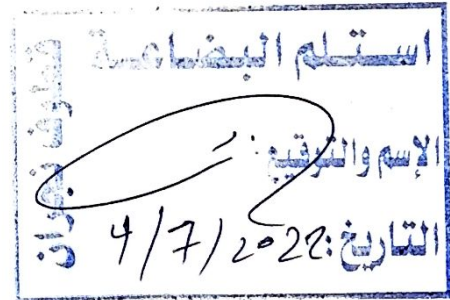 استلم البضاعة
الإسم والتوقيع:
التاريخ: 4/7/2022
نجران